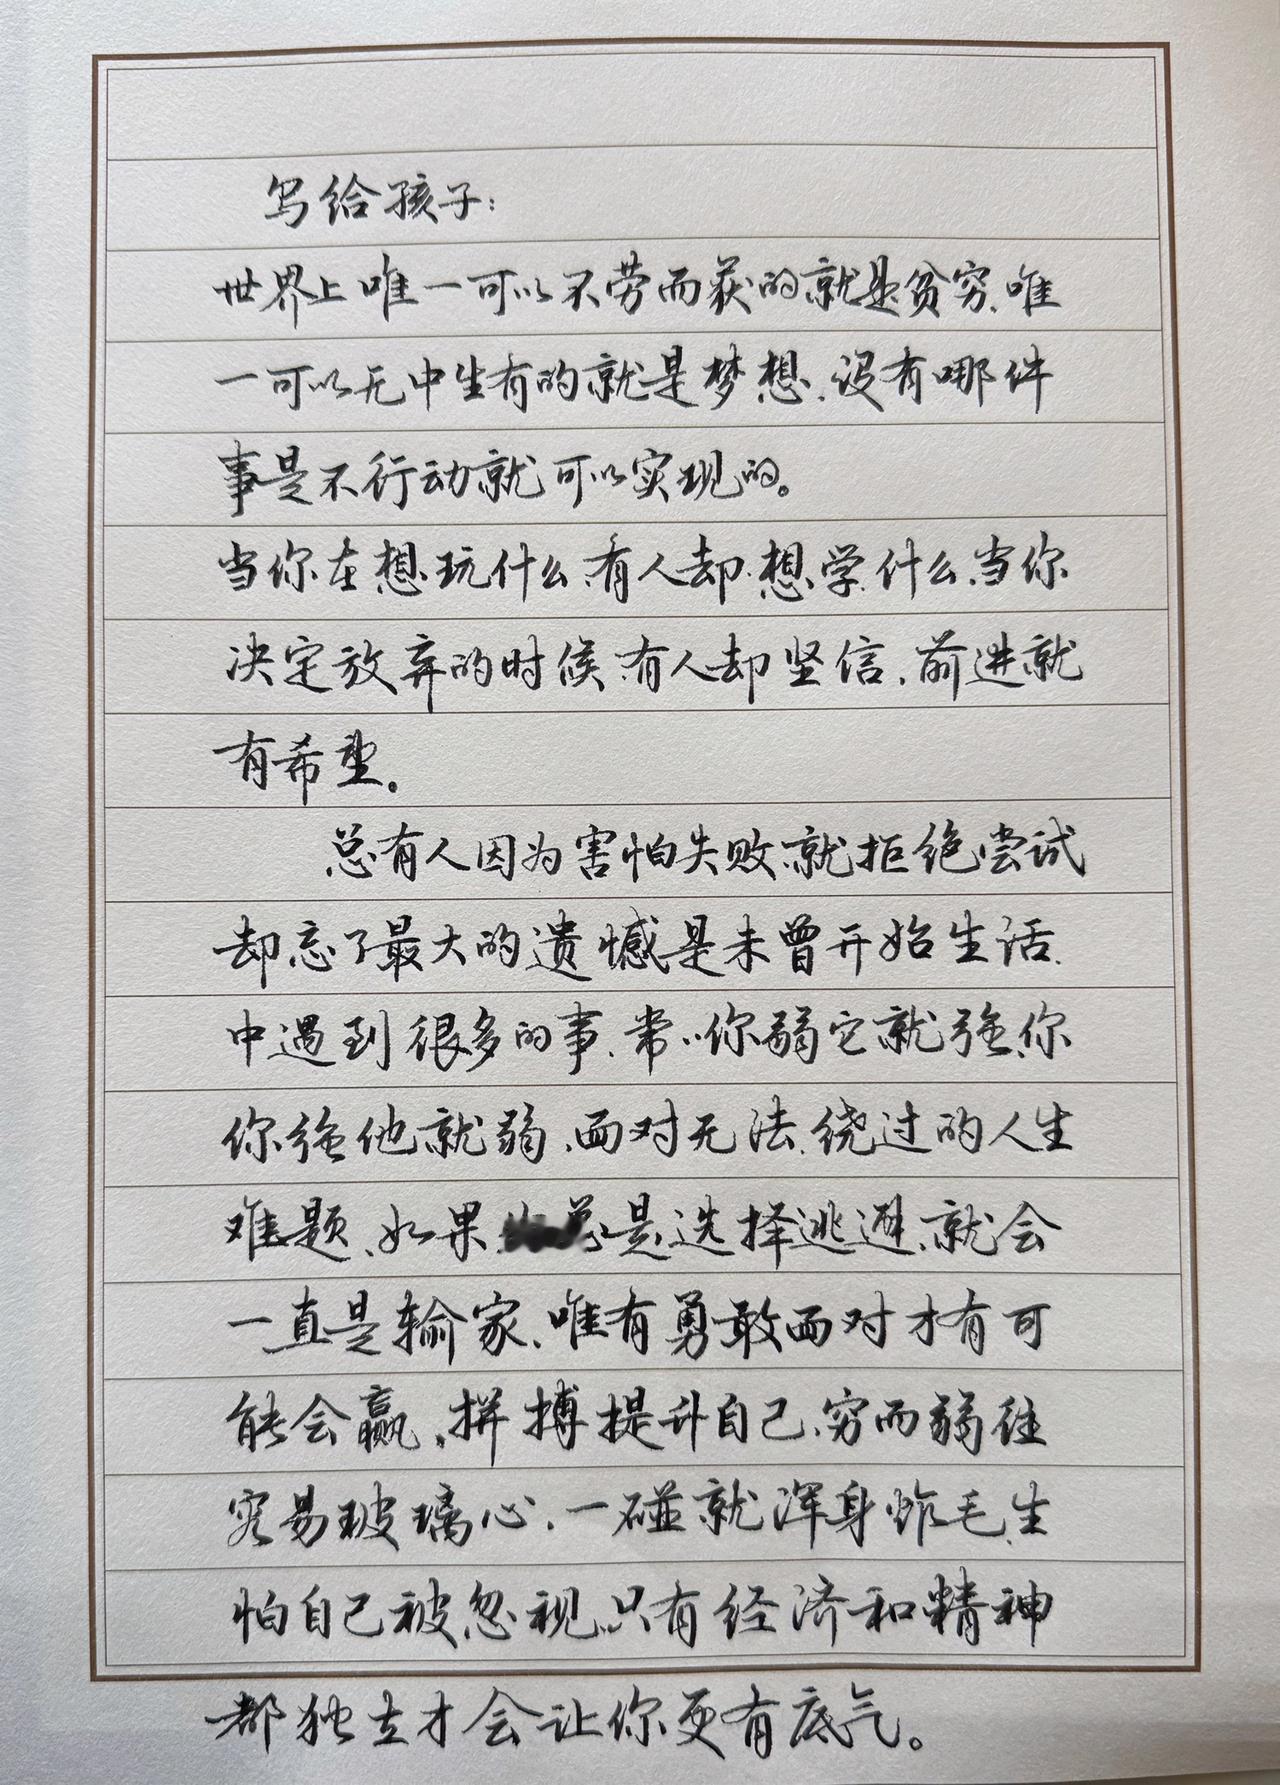 写给孩子:
世界上唯一可以不劳而获的就是贫穷、唯
一可以无中生有的就是梦想、没有哪件
事是不行动就可以实现的。
当你在想玩什么、有人却想学什么、当你
决定放弃的时候、有人却坚信、前进就
有希望。
总有人因为害怕失败、就拒绝尝试
却忘了最大的遗憾是未曾开始生活、
中遇到很多的事、常常你弱它就强、你
你强他就弱、面对无法绕过的人生
难题、如果是选择逃避、就会
一直是输家、唯有勇敢面对才有可
能会赢、拼搏提升自己、穷而弱往
容易玻璃心、一碰就浑身炸毛、生
怕自己被忽视、只有经济和精神
都独立才会让你更有底气。